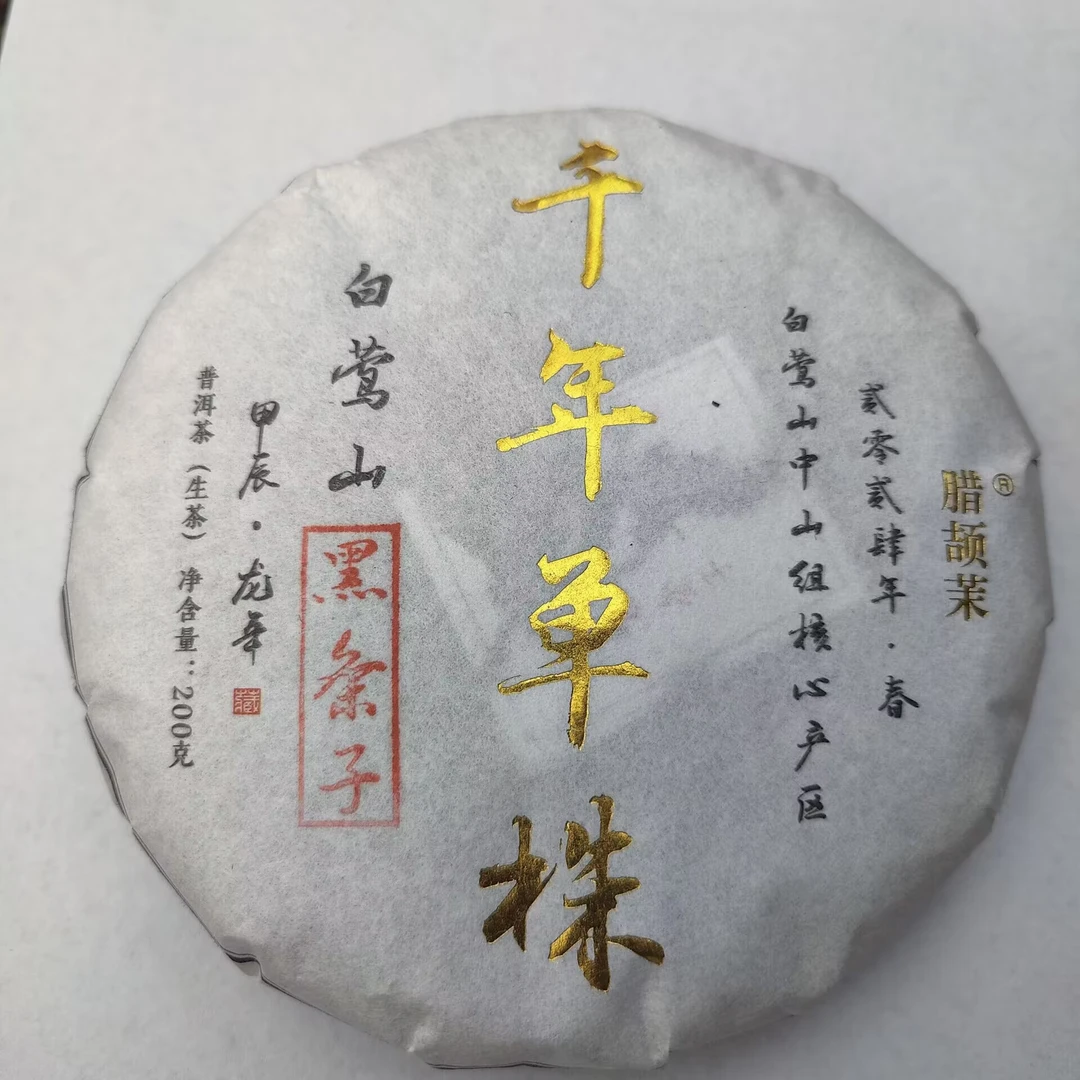 腊颉茉®
贰零贰肆年·春
白莺山中山组核心产区
千年单株
白莺山
黑条子
甲辰·龙年
藏
普洱茶（生茶） 净含量：200克